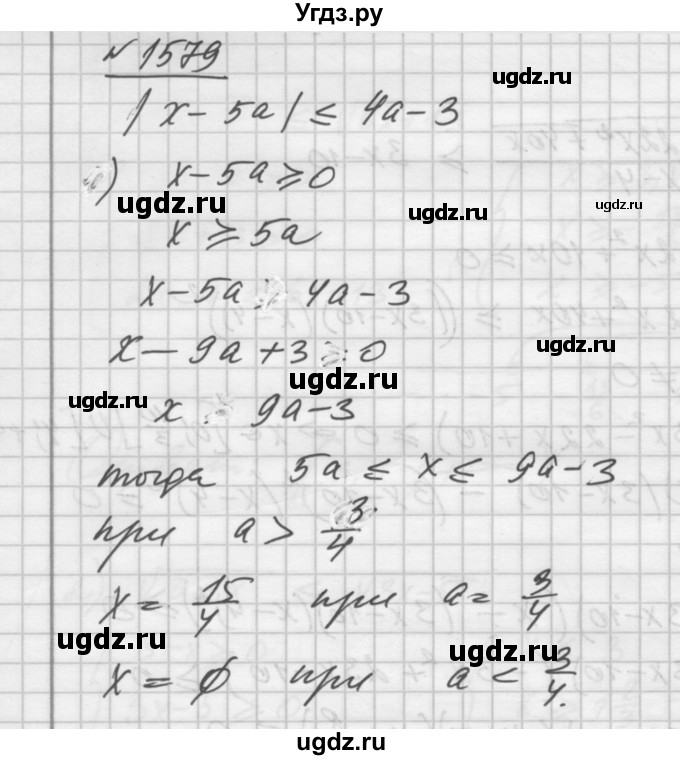 Угдз.ру
№ 1579
ugdz.ru
|x - 5a| ≤ 4a - 3
x - 5a ≥ 0
ugdz.ru
ugdz.ru
ugdz.ru
x ≥ 5a
x - 5a 4a - 3
x - 9a + 3 0
ugdz.ru
ugdz.ru
ugdz.ru
x 9a - 3
тогда 5a ≤ x ≤ 9a - 3
при a > 3/4
x = 15/4 при a = 3/4
ugdz.ru
ugdz.ru
x = ∅ при a < 3/4.
ugdz.ru